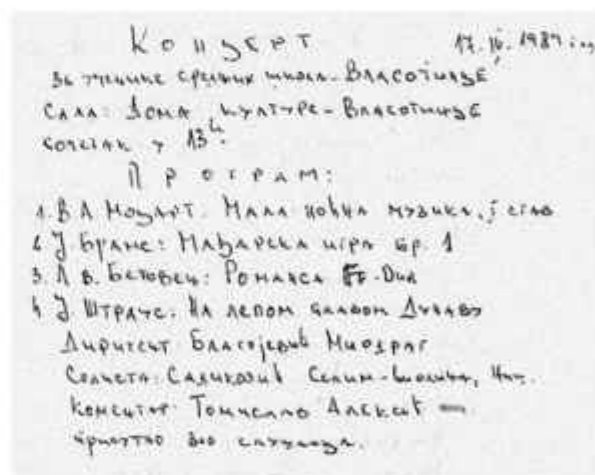 Концерт 17. IV. 1989.
за ученике средњих школа - Власотинце
Сала: Дома културе - Власотинце
почетак у 13ч.
Програм:
1. В. А. Моцарт: Мала ноћна музика, I став
2. Ј. Брамс: Мађарска игра бр. 1
3. Л. в. Бетовен: Романса F-Dur
4. Ј. Штраус: На лепом плавом Дунаву
Диригент: Благојевић Миодраг
Солиста: Салиховић Селим - виолина,
Коментар: Томислав Алексић